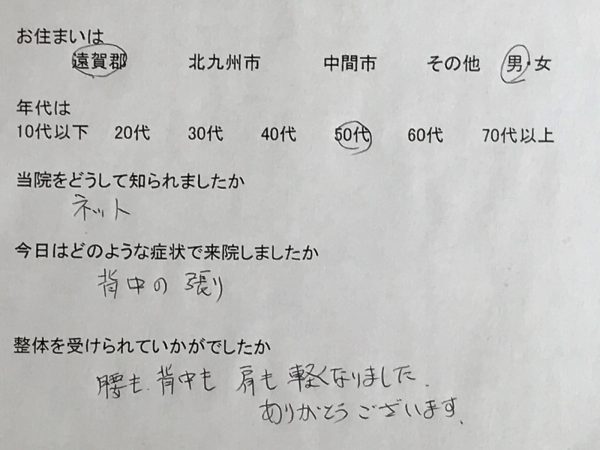 お住まいは
遠賀郡 北九州市 中間市 その他 男・女
年代は
10代以下 20代 30代 40代 50代 60代 70代以上
当院をどうして知られましたか
ネット
今日はどのような症状で来院しましたか
背中の張り
整体を受けられていかがでしたか
腰も、背中も 肩も 軽くなりました。
ありがとうございます。